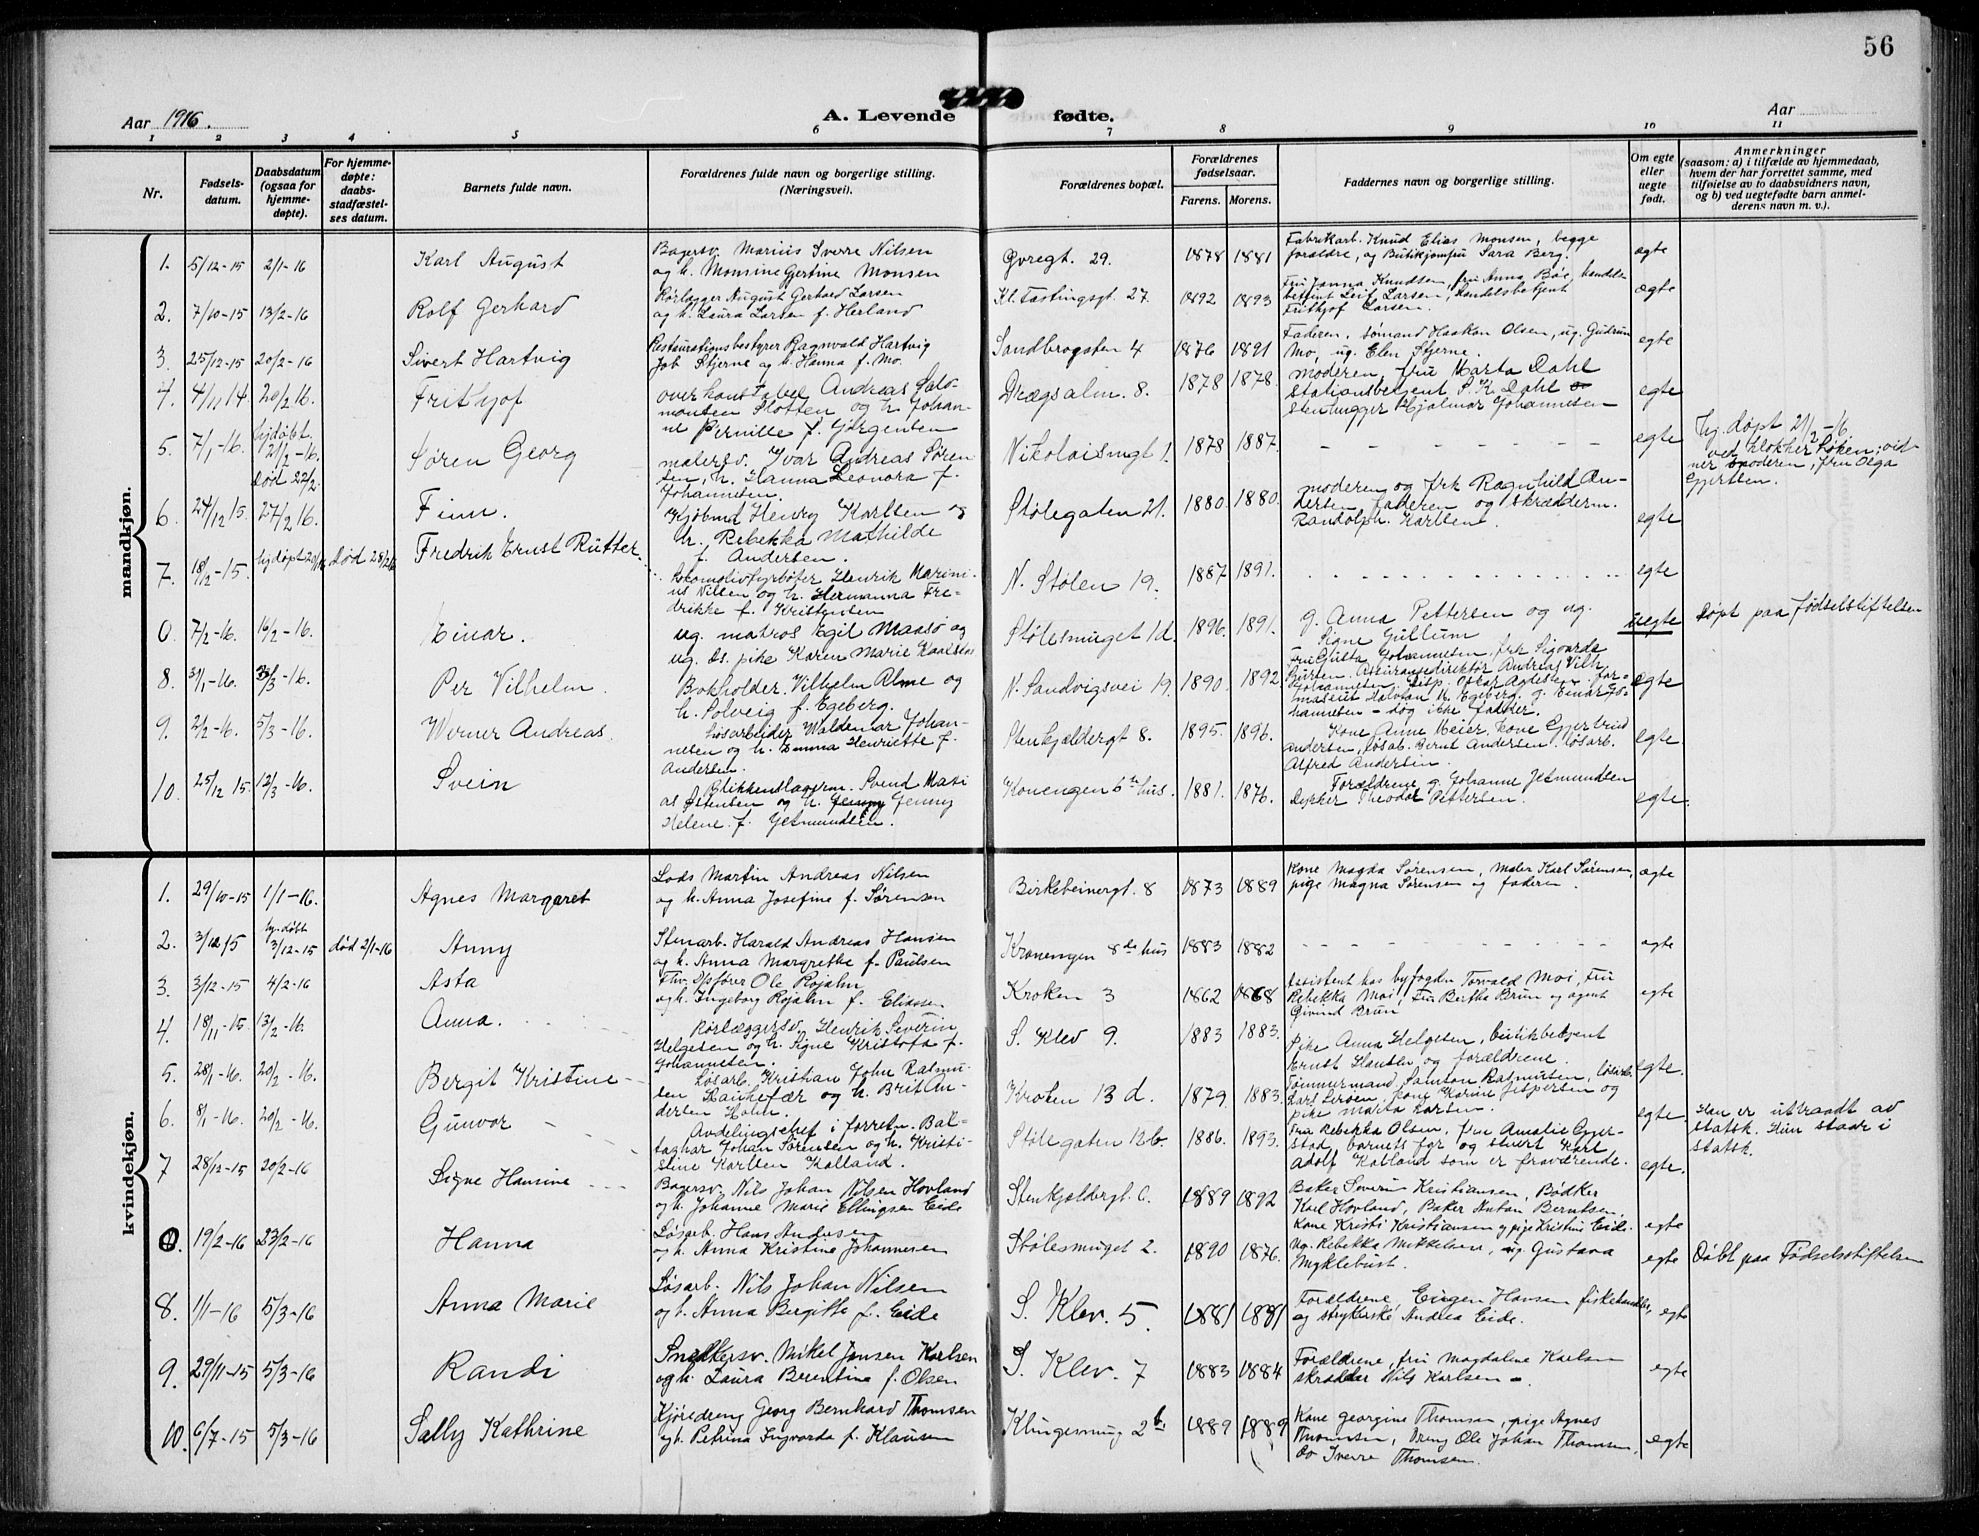 56
Aar 1916.
A. Levende fødte.
Aar
1 2 3 4 5 6 7 8 9 10 11
Nr.
Fødsels-datum.
Daabsdatum (ogsaa for hjemme-døpte).
For hjemme-døpte: daabs-stadfæstel-ses datum.
Barnets fulde navn.
Forældrenes fulde navn og borgerlige stilling.
(Næringsvei).
Forældrenes bopæl.
Forældrenes fødselsaar.
Farens. Morens.
Faddernes navn og borgerlige stilling.
Om egte eller uegte født.
Anmerkninger
(saasom: a) i tilfælde av hjemmedaab,
hvem der har forrettet samme, med
tilføielse av to daabsvidners navn,
og b) ved uegtefødte barn anmel-
derens navn m. v.).
mandkjøn.
1. 5/12-15 2/1-16 Karl August
Bagersv. Marius Sverre Nilsen
og h. Monsine Gertine Monsen
Øvregt. 29. 1878 1881
Fabrikarb. Knud Elias Monsen, begge
forældre, og Butikjomfru Sara Berg.
egte
2. 7/10-15 13/2-16 Rolf Gerhard
Rørlægger August Gerhard Larsen
og h. Laura Larsen f. Herland
Kl. Tastingsgt. 27. 1892 1893
Fru Janna Knudsen, fru Anna Bøe, handels-
betjent Leif Larsen, handelsbetjent
Frithjof Larsen.
ægte
3. 25/12-15 20/2-16 Sivert Hartvig
Restaurationsbestyrer Ragnvald Hartvig
Job Stjerne og h. Hanna f. Mo.
Sandbrogaten 4 1876 1891
Faderen, sømand Haakon Olsen, ug. Gudrun
Mo, ug. Elen Stjerne.
egte
4. 4/11 14. 20/2 16. Frithjof
overkonstabel Andreas Salo-
monsen Slotten og h. Johan-
ne Pernille f. Jørgensen
Dregsalm. 8. 1878 1878.
moderen, fru Marta Dahl
stationsbetjent S. K. Dahl
stenhugger Hjalmar Johannesen
egte
5. 7/1-16. hjdøbt 21/2-16. Død 22/2. Søren Georg
malersv. Ivar Andreas Søren-
sen, h. Hanna Leonora f.
Johannesen.
Nikolaismgt 1. 1878 1887.
egte
Hj. døpt 21/2-16
ved klokker Løken; vid-
ner moderen, fru Olga
Gjertsen.
6. 24/12 15. 27/2 16. Finn.
Kjøbmd Henry Karlsen og
h. Rebekka Mathilde
f. Andersen.
Stølegaten 21. 1880. 1880.
moderen og frk Ragnhild An-
dersen faderen og skrædderm.
Randolph. Karlsen.
egte
7. 18/12-15. død 28/2 Fredrik Ernst Rütter
Lokomotivfyrbøter Henrik Marini-
us Nilsen og h. Hermanna Fre-
drikke f. Kristensen
N. Stølen 19. 1887 1891.
egte
0. 7/2-16. 16/2-16. Einar.
ug. matros Egil Maasø og
ug. ds. pike Karen Marie
Stølesmuget 1d. 1896. 1891.
g. Anna Pettersen og ug.
Signe Gullum
uegte
Døpt paa Fødselstiftelsen
8. 31/1-16. Per Vilhelm.
Bokholder Vilhelm Alme og
h. Solveig f. Egeberg.
N. Sandvigsvei 19. 1890. 1892
Fru Gusta Johannesen, frk Sigvarda
Assurancedirektør Andreas Vilh.
Johannesen,
Egeberg. g. Einar Jo-
hannesen - dog ikke fadder.
egte
9. 2/2-16. 5/3-16. Werner Andreas.
Løsarbeider Waldemar Johan-
nesen og h. Emma Henriette f.
Andersen.
Stenkjeldergt 8. 1895. 1896.
Kone Anne Meier, kone Gjertrud
Andersen, løsab. Bernt Andersen, løsarb.
Alfred Andersen.
egte.
10. 25/12 15. 12/3-16. Svein
Blikkenslagerm. Svend Masi
as Østensen og h. Jenny
Helene f. Jetmundsen.
Konengen 6te hus. 1881. 1876.
Forældrene g. Johanne Jetmundsen
Theodor Pettersen.
egte.
kvindekjøn.
1. 29/10-15 1/1-16. Agnes Margaret
Lods Martin Andreas Nilsen
og h. Anna Josefine f. Sørensen
Birkebeinergt. 8 1873 1889
Kone Magda Sørensen, Maler Karl Sørensen,
pige Magna Sørensen og faderen.
ægte
2. 3/12 15 hj. døbt 3/12-15 død 2/1-16 Anny
Stenarb. Harald Andreas Hansen
og h. Anna Margrethe f. Paulsen
Kronengen 8de hus 1883 1882
egte
3. 3/12-15 4/2-16 Asta
Fhv. Opsfører Ole Røjahn
og h. Ingeborg Røjahn f. Eliassen
Kroken 3 1862 1868
Assistent hos byfogden Torvald Moi, Fru
Rebekka Moi, Fru Berthe Brun og agent
Eivind Brun
egte
4. 18/11-15 13/2-16. Anna.
Rørlæggersv. Henrik Severin
Helgesen og h. Signe Kristofa f.
Johannesen.
S. Klev 9. 1883 1883.
Pike Anna Helgesen, butikbetjent
Ernst Hansen og forældrene.
egte.
5. 28/1-16. 20/2-16. Bergit Kristine
Løsarb. Kristian John Rasmu-
sen Haukefær og h. Brit An-
dersen Holm.
Kroken 13 d. 1879. 1883.
Tømmermand Samson Rasmusen, løsarb.
Lars Lerøen, kone Karine Jespersen og
pike Marta Larsen.
egte.
6. 8/1-16. 20/2-16. Gunvor
Avdelingschef i forretn. Bal-
tazhar Johan Sørensen og h. Kristi-
stine Karlsen Kalland.
Stølegaten 12b. 1886. 1893.
Fru Rebekka Olsen, frue Amalie Gjer-
stad, barnets far og stuert Karl
Adolf Kalland som er fraværende.
egte.
Han er utraadt av
statsk. Hun staar i
statsk.
7 28/12-15 20/2-16 Signe Hansine
Bagersv. Nils Johan Nilsen Hovland
og h. Johanne Marie Ellingsen Eide
Stenkjeldergt. 0. 1889 1892
Baker Severin Kristiansen, Bødker
Karl Hovland, Baker Anton Berntsen,
Kone Kristi Kristiansen og pige Kristine Eide.
egte
0. 19/2-16 23/2-16 Hanna
Løsarb. Hans Andersen
og h. Anna Kristine Johannesen
Stølesmuget 2. 1890 1876.
Ug. Rebekka Mikkelsen, ug. Gustava
Myklebust.
egte
Døbt paa Fødselsstiftelsen
8. 1/1-16 5/3-16 Anna Marie
Løsarb. Nils Johan Nilsen
og h. Anna Bergitte f. Eide
S. Klev. 5. 1881 1881
Forældrene Eugen Hansen fiskehandler,
og strykerske Andrea Eide.
egte
9. 29/11-15 5/3-16 Randi
Snedkersv. Mikel Jensen Karlsen
og h. Laura Berentine f. Olsen
S. Klev. 7 1883 1884
Forældrene, fru Magdalene Karlsen
skrædder Nils Karlsen
egte
10. 6/7-15 5/3-16 Sally Kathrine
Kjøredreng Georg Bernhard Thomsen
og h. Petrina Ingvarda f. Klausen
Klingesmug 2b. 1889 1889
Kone Georgine Thomsen, pige Agnes
Thomsen, Dreng Ole Johan Thomsen,
Do Sverre Thomsen.
egte